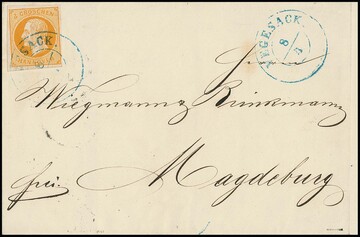 3 GROSCHEN
HANNOVER
VEGESACK
8
4
Wiegmann & Brinkmann
frei.
Magdeburg